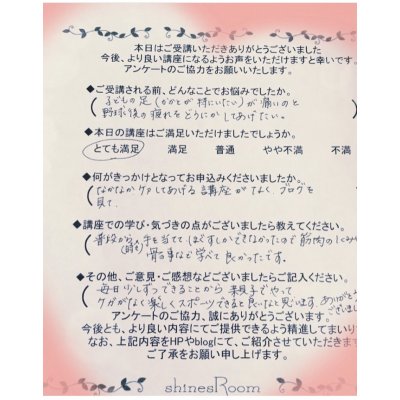 本日はご受講いただきありがとうございました
今後、より良い講座になるようお声をいただけますと幸いです。
アンケートのご協力をお願いいたします。
◆ご受講される前、どんなことでお悩みでしたか。
子どもの足(かかとが特にいたい)が痛いのと
野球後の疲れをどうにかしてあげたい。
◆本日の講座はご満足いただけましたでしょうか。
とても満足 満足 普通 やや不満 不満
◆何がきっかけとなってお申込みくださいましたか。
なかなかケアしてあげる講座がなく、ブログを
見て、
◆講座での学び・気づきの点がございましたら教えてください。
普段から手を当てて ほぐすしかできなかったので筋肉の
骨の事など学べて良かったです。
◆その他、ご意見・ご感想などございましたらご記入ください。
毎日少しずつできることから 親子でやって
ケガがなく楽しくスポーツできると良いなと思います。ありがとう
ございました
アンケートのご協力、誠にありがとうございます。
今後とも、より良い内容にてご提供できるよう精進してまいり
なお、上記内容をHPやblogにて、ご紹介させていただきます
ご了承をお願い申し上げます。
shinesRoom